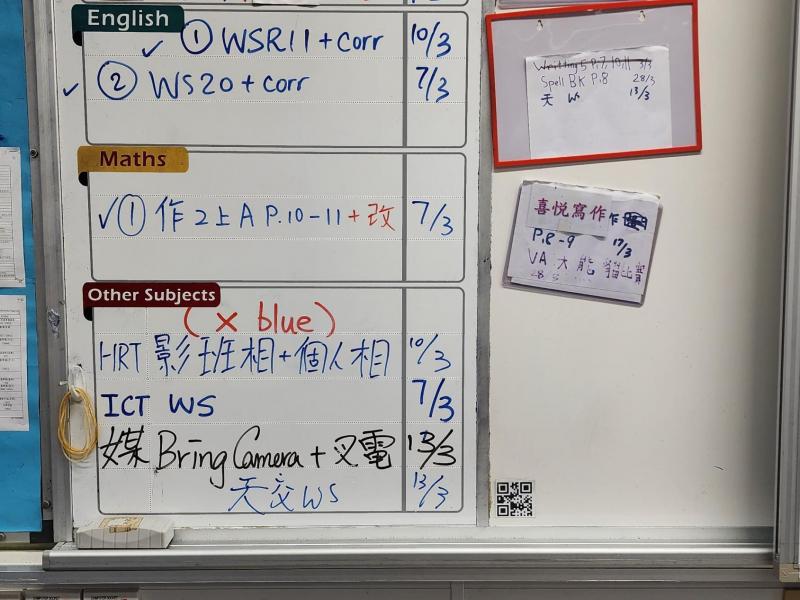 English
✓ ① WSR11 + Corr 10/3
✓ ② WS20 + Corr 7/3
Maths
✓ ① 作 2上A P.10-11 + 改 7/3
Other Subjects
(× blue)
HRT 影班相+個人相 10/3
ICT WS 7/3
媒 Bring Camera + 叉電 13/3
天交WS 13/3
Spell BK P.8 28/3
天 WS 13/3
喜悅寫作
P.8-9 17/3
VA 大能 比賽
28